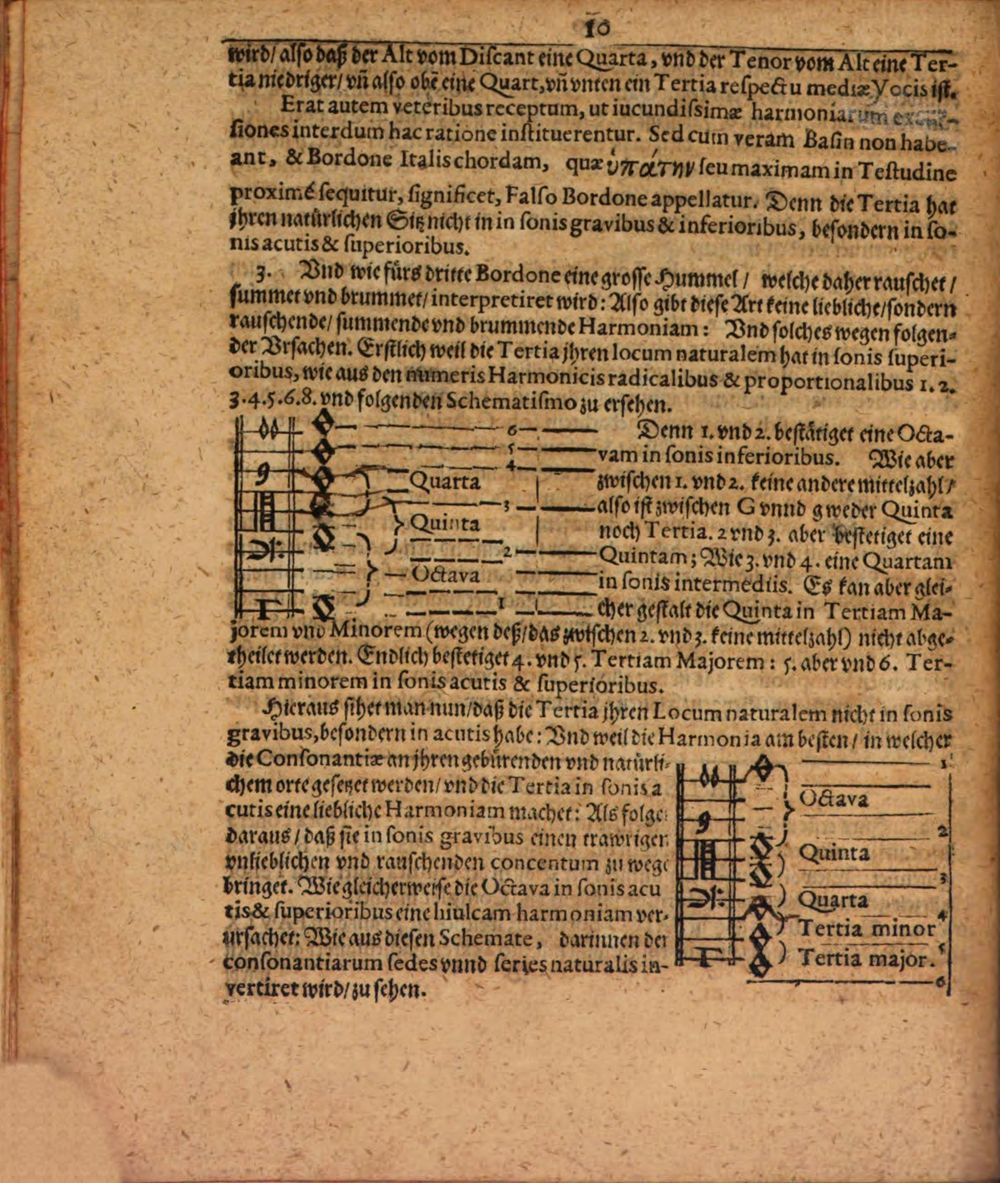 10
wird/ also daß der Alt vom Discant eine Quarta, vnd der Tenor vom Alt eine Ter-
tia niedriger/ vñ also obē eine Quart, vñ vnten ein Tertia respectu mediæ Vocis ist.
Erat autem veteribus receptum, ut iucundissimæ harmoniarum
siones interdum hac ratione instituerentur. Sed cum veram Basin non habe-
ant, & Bordone Italis chordam, quæ ὑπάτην seu maximam in Testudine
proximé sequitur, significet, Falso Bordone appellatur. Denn die Tertia hat
jhren natürlichen Sitz nicht in in sonis gravibus & inferioribus, besondern in so-
nis acutis & superioribus.
3. Vnd wie fürs dritte Bordone eine grosse Hummel/ welche daher rauschet/
summet vnd brummet/ interpretiret wird: Also gibt diese Art keine liebliche/ sondern
rauschende/ summende vnd brummende Harmoniam: Vnd solches wegen folgen-
der Vrsachen. Erstlich weil die Tertia jhren locum naturalem hat in sonis superi-
oribus, wie aus den numeris Harmonicis radicalibus & proportionalibus 1. 2.
3. 4. 5. 6. 8. vnd folgenden Schematismo zu ersehen.
6
5
4
Quarta
3
Quinta
2
Octava
1
Denn 1. vnd 2. bestätiget eine Octa-
vam in sonis inferioribus. Wie aber
zwischen 1. vnd 2. keine andere mittelzahl/
also ist zwischen G vnnd g weder Quinta
noch Tertia. 2 vnd 3. aber bestetiget eine
Quintam; Wie 3. vnd 4. eine Quartam
in sonis intermediis. Es kan aber glei-
cher gestalt die Quinta in Tertiam Ma-
jorem vnd Minorem (wegen deß/ das zwischen 2. vnd 3. keine mittelzahl) nicht abge-
theilet werden. Endlich bestetiget 4. vnd 5. Tertiam Majorem: 5. aber vnd 6. Ter-
tiam minorem in sonis acutis & superioribus.
Hieraus sihet man nun/ daß die Tertia jhren Locum naturalem nicht in sonis
gravibus, besondern in acutis habe: Vnd weil die Harmonia am besten/ in welcher
die Consonantiæ an jhren gebürenden vnd natürli-
chem orte gesetzet werden/ vnd die Tertia in sonis a
cutis eine liebliche Harmoniam machet: Als folget
daraus/ daß sie in sonis gravibus einen trawrigen
vnlieblichen vnd rauschenden concentum zu wege
bringet. Wie gleicherweise die Octava in sonis acu
tis & superioribus eine hiulcam harmoniam ver-
ursachet: Wie aus diesen Schemate, darinnen der
consonantiarum sedes vnnd series naturalis in-
vertiret wird/ zu sehen.
1
Octava
2
Quinta
3
Quarta
4
Tertia minor
5
Tertia major.
6